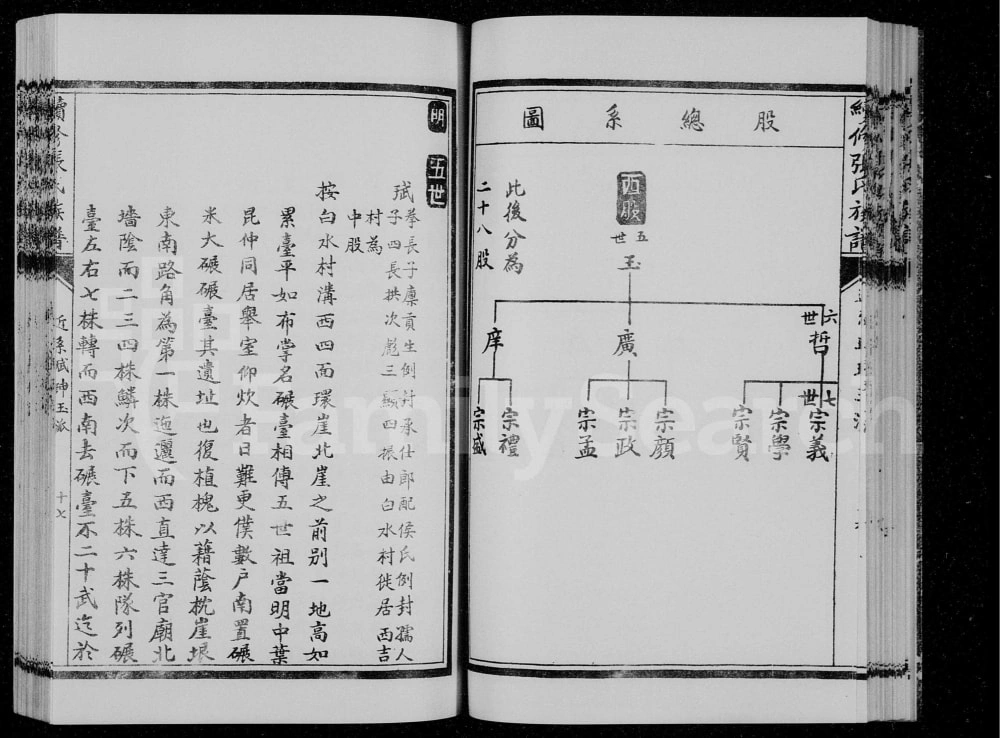 股總系圖
西股
五世
玉
此後分為
二十八股
六世
哲
廣
庠
七世
宗義
宗學
宗賢
宗顏
宗政
宗孟
宗禮
宗盛
明
五世
斌
拳長子廩貢生例封承仕郎配侯氏例封孺人
子四長拱次彪三顯四振由白水村徙居西吉
村為
中股
按白水村溝西四面環崖北崖之前別一地高如
累臺平如布掌名碾臺相傳五世祖當明中葉
昆仲同居舉室仰炊者日難更僕數户南置碾
米大碾碾臺其遺址也復植槐以藉蔭枕崖垠
東南路角為第一株迤邐而西直達三官廟北
墻陰而二三四株鱗次而下五株六株隊列碾
臺左右七株轉而西南去碾臺不二十武迄於
續修張氏族譜
近系斌神玉派
十七
FamilySearch